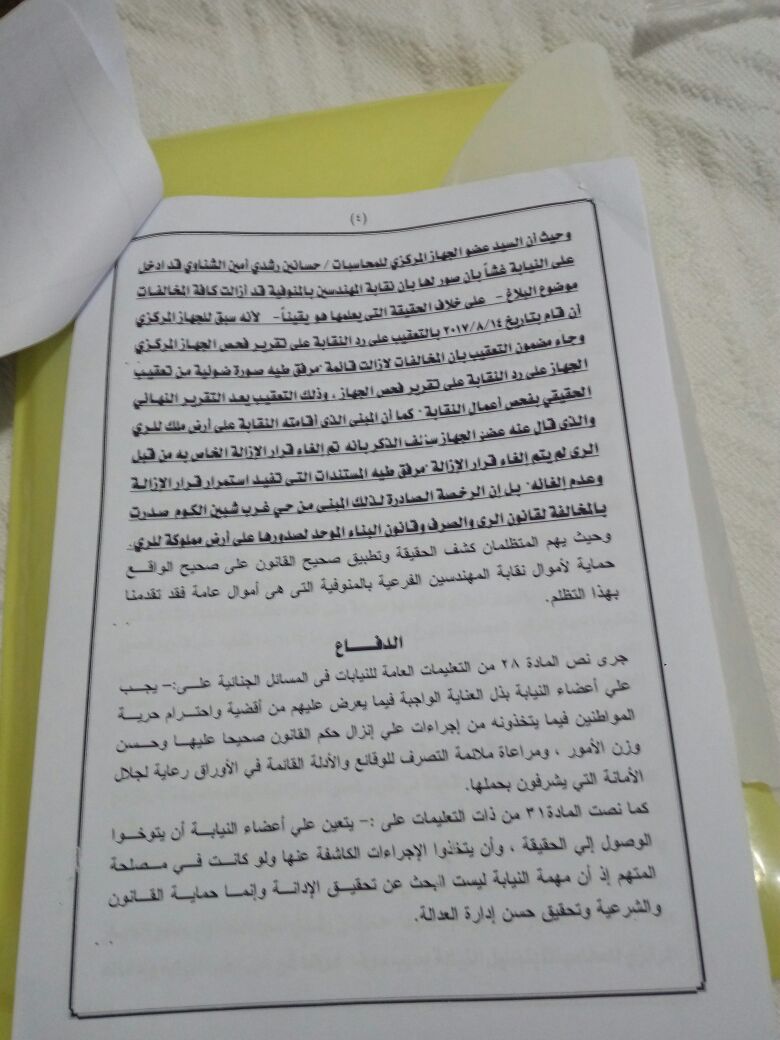 (٤)
وحيث أن السيد عضو الجهاز المركزي للمحاسبات / حسانين رشدي أمين الشناوي قد ادخل
على النيابة غشاً بأن صور لها بأن نقابة المهندسين بالمنوفية قد أزالت كافة المخالفات
موضوع البلاغ - على خلاف الحقيقة التى يعلمها هو يقيناً - لأنه سبق للجهاز المركزي
أن قام بتاريخ ٢٠١٧/٨/١٤ بالتعقيب على رد النقابة على تقرير فحص الجهاز المركزي
وجاء مضمون التعقيب بان المخالفات لازالت قائمة "مرفق طيه صورة ضوئية من تعقيب
الجهاز على رد النقابة على تقرير فحص الجهاز ، وذلك التعقيب يعد التقرير النهائي
الحقيقي بفحص أعمال النقابة" كما أن المبنى الذى أقامته النقابة على أرض ملك للرى
والذى قال عنه عضو الجهاز سالف الذكر بانه تم إلغاء قرار الإزالة الخاص به من قبل
الرى لم يتم إلغاء قرار الإزالة "مرفق طيه المستندات التى تفيد استمرار قرار الإزالة
وعدم إلغائه" بل إن الرخصة الصادرة لذلك المبنى من حي غرب شبين الكوم صدرت
بالمخالفة لقانون الرى والصرف وقانون البناء الموحد لصدورها على أرض مملوكة للرى.
وحيث يهم المتظلمان كشف الحقيقة وتطبيق صحيح القانون على صحيح الواقع
حماية لأموال نقابة المهندسين الفرعية بالمنوفية التى هى أموال عامة فقد تقدمنا
بهذا التظلم.
الدفاع
جرى نص المادة ٢٨ من التعليمات العامة للنيابات فى المسائل الجنائية على:- يجب
علي أعضاء النيابة بذل العناية الواجبة فيما يعرض عليهم من أقضية واحترام حرية
المواطنين فيما يتخذونه من إجراءات علي إنزال حكم القانون صحيحا عليها وحسن
وزن الأمور ، ومراعاة ملائمة التصرف للوقائع والأدلة القائمة في الأوراق رعاية لجلال
الأمانة التي يشرفون بحملها.
كما نصت المادة ٣١ من ذات التعليمات على :- يتعين علي أعضاء النيابة أن يتوخوا
الوصول إلي الحقيقة ، وأن يتخذوا الإجراءات الكاشفة عنها ولو كانت في مصلحة
المتهم إذ أن مهمة النيابة ليست البحث عن تحقيق الإدانة وإنما حماية القانون
والشرعية وتحقيق حسن إدارة العدالة.